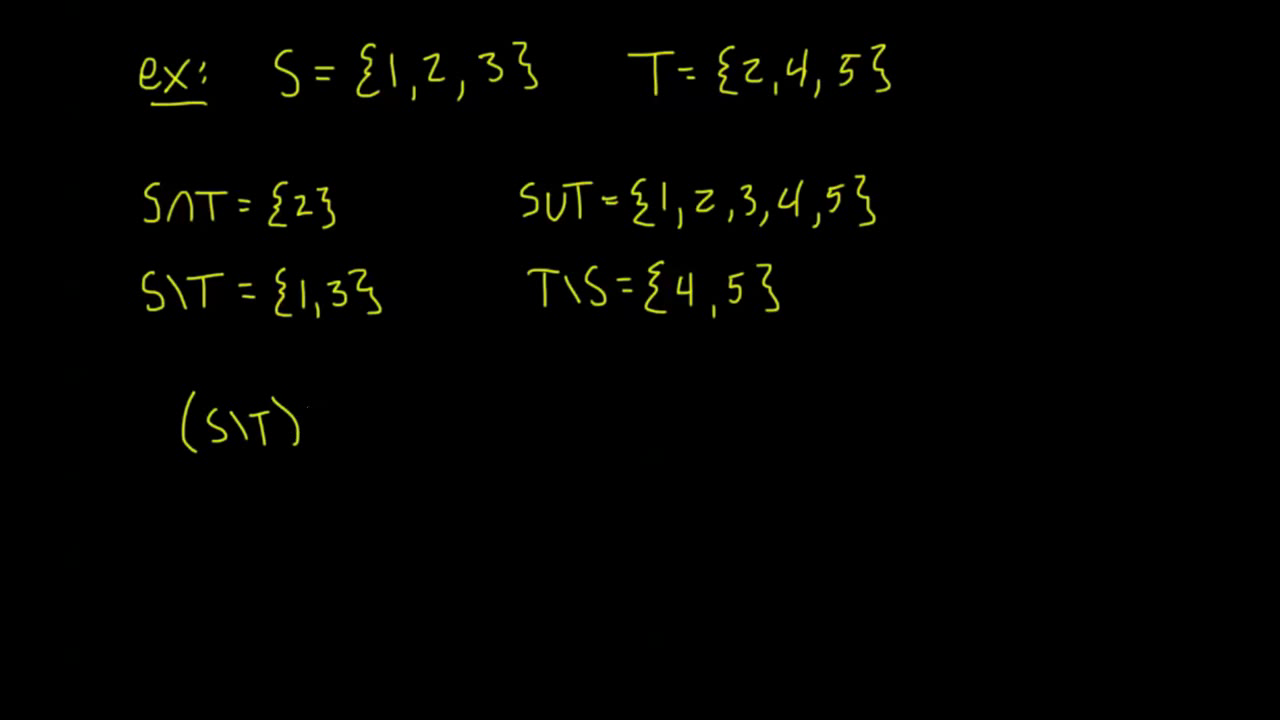 ex: S = {1, 2, 3} T = {2, 4, 5}
S∩T = {2} S∪T = {1, 2, 3, 4, 5}
S\T = {1, 3} T\S = {4, 5}
(S\T)